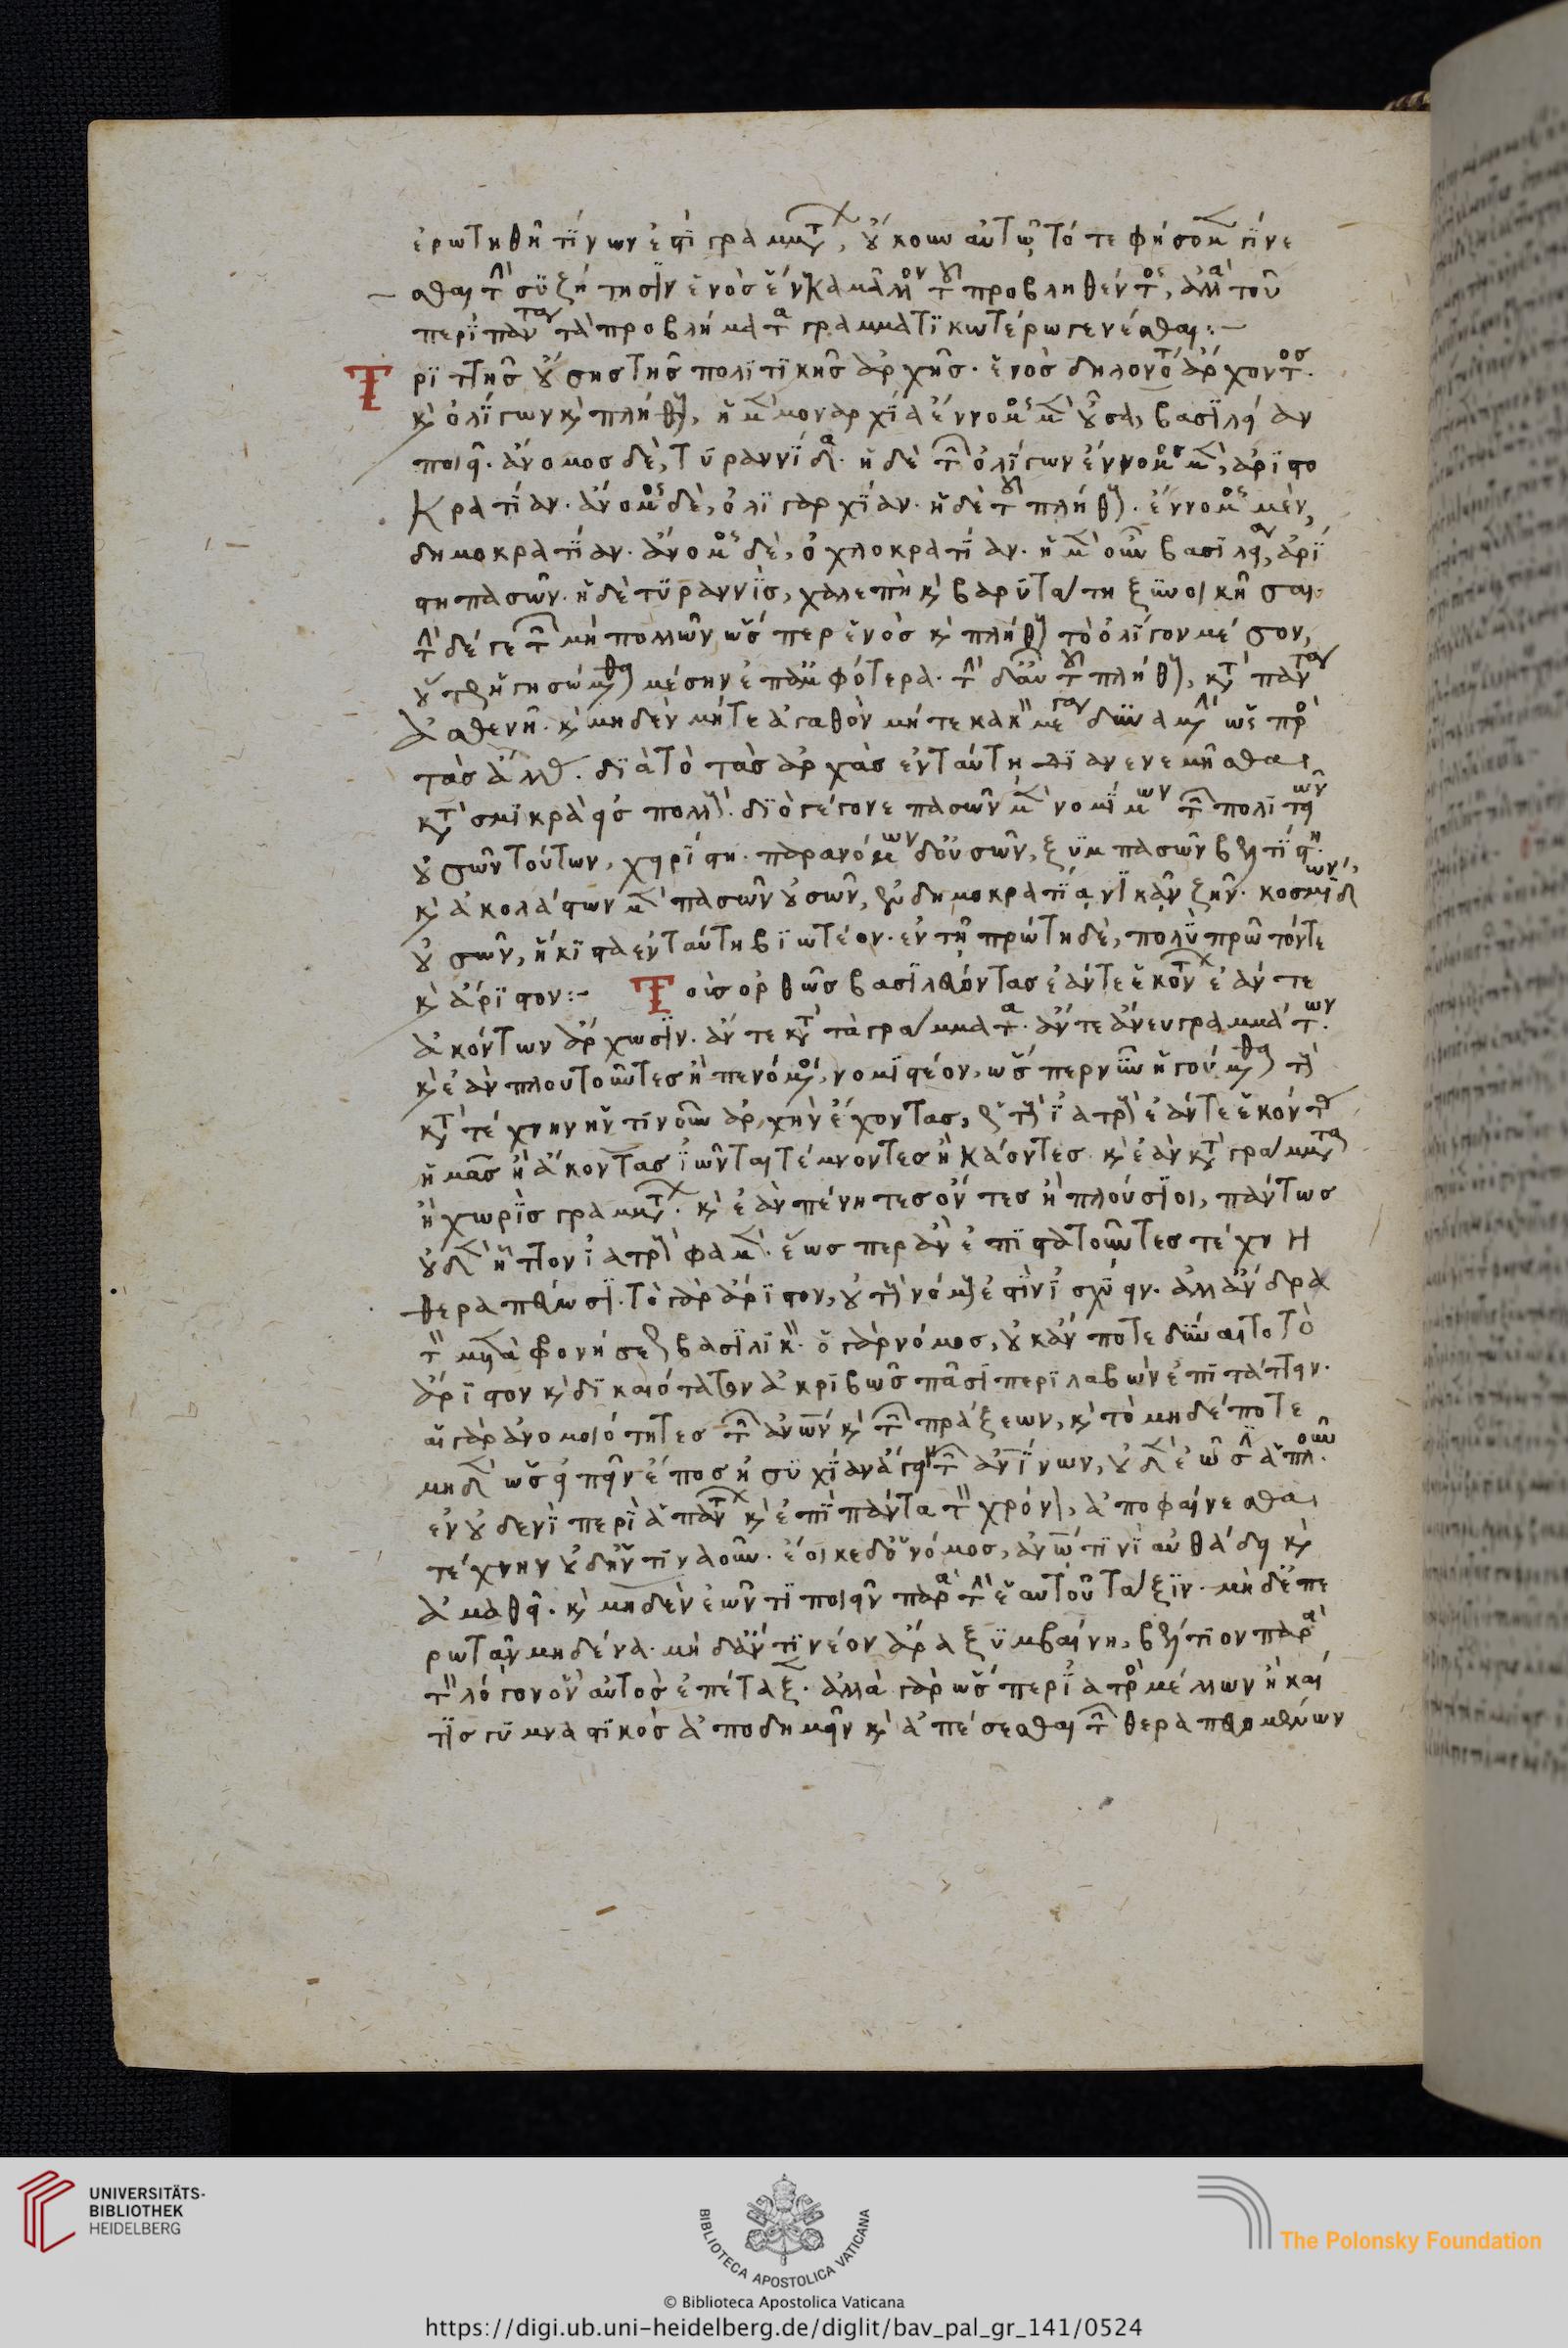 ἐρωτηθῇ τίνων ἐστὶ γραμμάτων, οὔκουν αὐτῷ τότε φήσομεν γίνε
σθαι τὴν συζήτησιν ἑνὸς ἕνεκα μᾶλλον τοῦ προβληθέντος, ἀλλὰ τοῦ
περὶ πάντα τὰ προβλήματα γραμματικωτέρῳ γενέσθαι:-
Τριττῆς οὔσης τῆς πολιτικῆς ἀρχῆς· ἑνὸς δηλονότι ἄρχοντος·
καὶ ὀλίγων καὶ πλήθους, ἡ μὲν μοναρχία ἔννομος μὲν οὖσα, βασιλείαν
ποιεῖ· ἄνομος δὲ, τυραννίδα· ἡ δὲ τῶν ὀλίγων ἔννομος μὲν, ἀριστο
κρατίαν· ἄνομος δὲ, ὀλιγαρχίαν· ἡ δὲ τοῦ πλήθους· ἔννομος μὲν,
δημοκρατίαν· ἄνομος δὲ, ὀχλοκρατίαν· ἡ μὲν οὖν βασιλεία, ἀρί
στη πασῶν· ἡ δὲ τυραννὶς, χαλεπὴ καὶ βαρυτάτη ξυνοικῆσαι·
τὴν δέ γε τῶν μὴ πολλῶν ὥσπερ ἑνὸς καὶ πλήθους τὸ ὀλίγον μέσον,
οὕτως ἡγησώμεθα μέσην ἐπ' ἀμφότερα· τὴν δ' αὖ τοῦ πλήθους, κατὰ πάντα
ἀσθενῆ· καὶ μηδὲν μήτε ἀγαθὸν μήτε κακὸν μέγα δυναμένην ὡς πρὸς
τὰς ἄλλας· διὰ τὸ τὰς ἀρχὰς ἐν ταύτῃ διανενεμῆσθαι
κατὰ σμικρὰ εἰς πολλούς· διὸ γέγονε πασῶν μὲν νομίμων τῶν πολιτειῶν
οὐσῶν τούτων, χειρίστη· παρανόμων δ' οὐσῶν, ξυμπασῶν βελτίστη·
καὶ ἀκολάστων μὲν πασῶν οὐσῶν, ἐν δημοκρατίᾳ νικᾷν ζῆν· κοσμίων δ'
οὐσῶν, ἥκιστα ἐν ταύτῃ βιωτέον· ἐν τῇ πρώτῃ δὲ, πολὺ πρῶτόν τε
καὶ ἄριστον:- Τοὺς ὀρθῶς βασιλεύοντας ἐάντε ἑκόντων ἐάν τε
ἀκόντων ἄρχωσιν· ἄν τε κατὰ τὰ γράμματα· ἄν τε ἄνευ γραμμάτων·
καὶ ἐὰν πλουτοῦντες ἢ πενόμενοι, νομιστέον, ὥσπερ νῦν ἡγούμεθα τοὺς
κατὰ τέχνην ἥντινοῦν ἀρχὴν ἔχοντας, καὶ τοὺς ἰατροὺς ἐάντε ἑκόντας
ἡμᾶς ἢ ἄκοντας ἰῶνται τέμνοντες ἢ κάοντες καὶ ἐὰν κατὰ γράμματα
ἢ χωρὶς γραμμάτων· καὶ ἐὰν πένητες ὄντες ἢ πλούσιοι, πάντως
οὐδὲν ἧττον ἰατροὺς φαμέν· ἕως περ ἂν ἐπιστατοῦντες τέχνῃ
θεραπεύωσι· τὸ γὰρ ἄριστον, οὐ τοὺς νόμους ἐστὶν ἰσχύειν· ἀλλ' ἄνδρα
τὸν μετὰ φρονήσεως βασιλικόν· ὁ γὰρ νόμος, οὐκ ἄν ποτε δύναιτο τὸ
ἄριστον καὶ δικαιότατον ἀκριβῶς πᾶσι περιλαβὼν ἐπιτάττειν·
αἱ γὰρ ἀνομοιότητες τῶν ἀνων καὶ τῶν πράξεων, καὶ τὸ μηδέποτε
μηδὲν ὡς εἰπεῖν ἔπος ἡσυχίαν ἄγειν τῶν ἀνίνων, οὐδὲν ἐῶσιν ἁπλοῦν
ἐν οὐδενὶ περὶ ἁπάντων καὶ ἐπὶ πάντα τὸν χρόνον, ἀποφαίνεσθαι
τέχνην οὐδ' ἥντιναοῦν· ἔοικε δ' ὁ νόμος, ἀνω τινὶ αὐθάδει καὶ
ἀμαθεῖ· καὶ μηδὲν ἐῶντι ποιεῖν παρὰ τὴν ἑαυτοῦ τάξιν· μὴδ' ἐπε
ρωτᾶν μηδένα· μὴδ' ἄν τι νέον ἄρα ξυμβαίνῃ, βέλτιον παρὰ
τὸν λόγον ὃν αὐτὸς ἐπέταξεν· ἀλλὰ γὰρ ὥσπερ ἰατρὸς μέλλων ἢ καί
τις γυμναστικὸς ἀποδημεῖν καὶ ἀπέσεσθαι τῶν θεραπευομένων
UNIVERSITÄTS-
BIBLIOTHEK
HEIDELBERG
BIBLIOTECA APOSTOLICA VATICANA
The Polonsky Foundation
© Biblioteca Apostolica Vaticana
https://digi.ub.uni-heidelberg.de/diglit/bav_pal_gr_141/0524